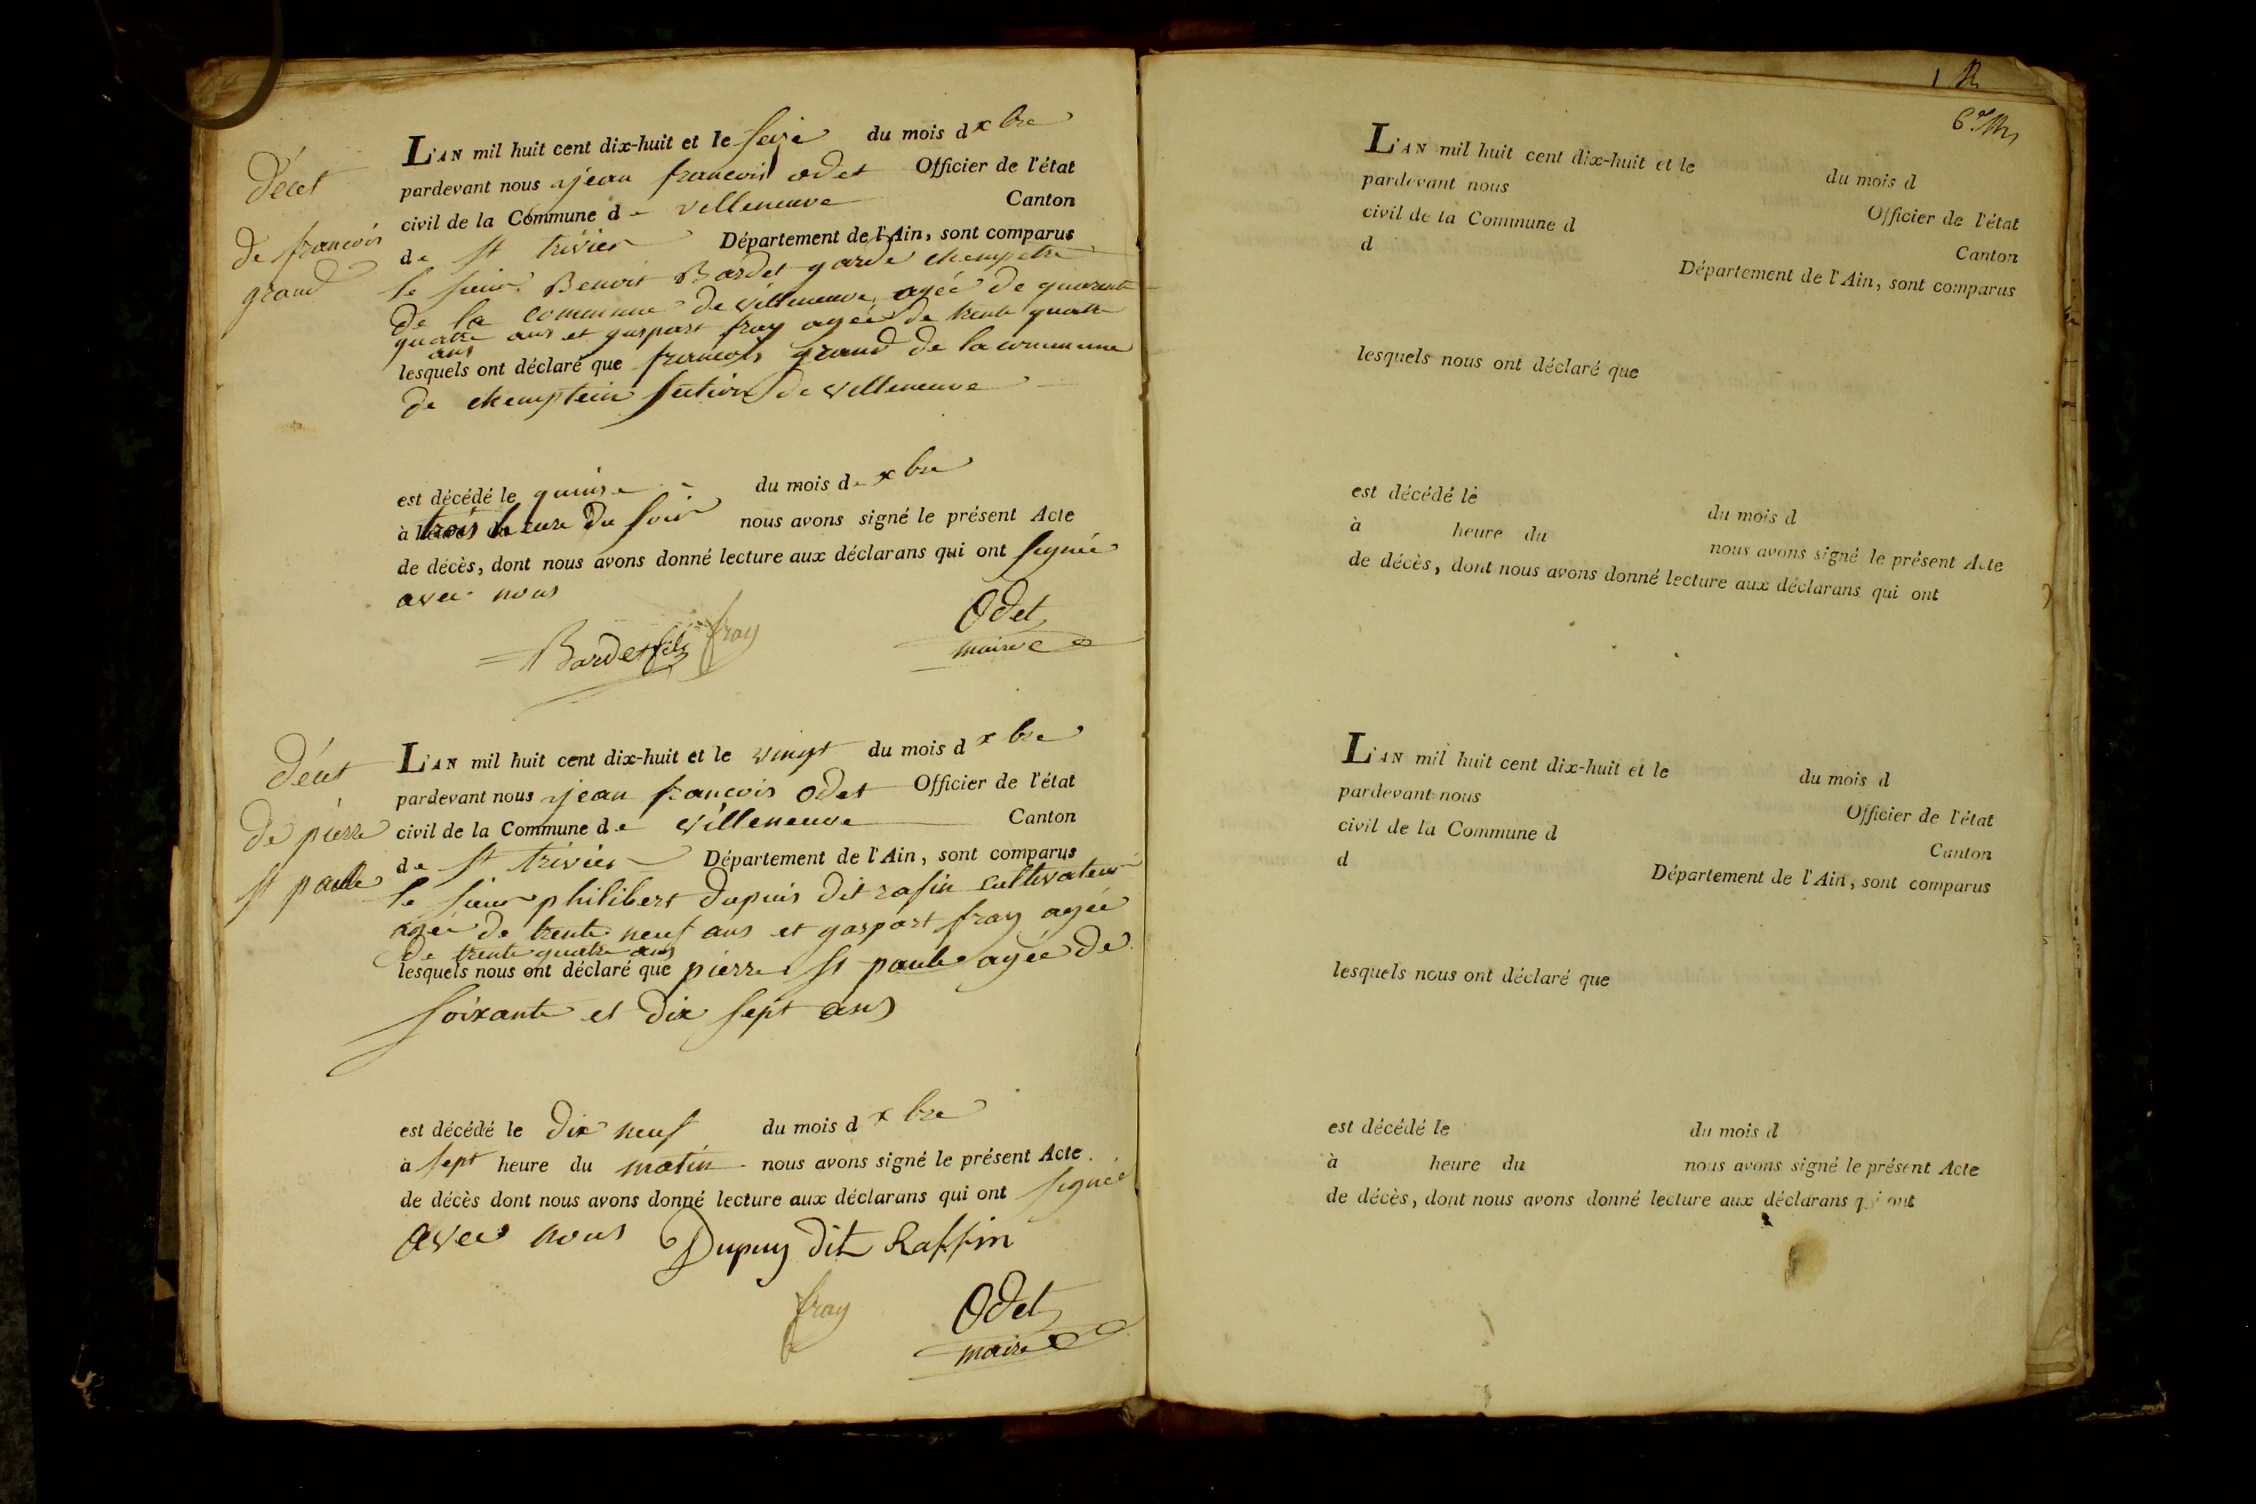 décet
de francois
grand
L'AN mil huit cent dix-huit et le seize du mois d xbre
pardevant nous jean francois odet Officier de l'état
civil de la Commune de villeneuve Canton
de st trivier Département de l'Ain, sont comparus
le sieur Benoit Bardet garde chempetre
de la commune de villeneuve agée de quarente
quatre ans et gaspart fray agée de trente quatre
ans
lesquels ont déclaré que francois grand de la commune
de chemptein section de villeneuve
est décédé le quinse du mois de xbre
à trois heure du soir nous avons signé le présent Acte
de décès, dont nous avons donné lecture aux déclarans qui ont signée
avec nous
Bardet fils fray Odet
maire
décet
de pierre
st paule
L'AN mil huit cent dix-huit et le vingt du mois d xbre
pardevant nous jean francois odet Officier de l'état
civil de la Commune de villeneuve Canton
de st trivier Département de l'Ain, sont comparus
le sieur philibert dupuis dit rafin cultivateur
agée de trente neuf ans et gaspart fray agée
de trente quatre ans
lesquels nous ont déclaré que pierre st paule agée de
soixante et dix sept ans
est décédé le dix neuf du mois d xbre
à sept heure du matin nous avons signé le présent Acte
de décès dont nous avons donné lecture aux déclarans qui ont signée
avec nous Dupuy dit Raffin
fray Odet
maire
L'AN mil huit cent dix-huit et le du mois d
pardevant nous Officier de l'état
civil de la Commune d Canton
d Département de l'Ain, sont comparus
lesquels nous ont déclaré que
est décédé le du mois d
à heure du nous avons signé le présent Acte
de décès, dont nous avons donné lecture aux déclarans qui ont
L'AN mil huit cent dix-huit et le du mois d
pardevant nous Officier de l'état
civil de la Commune d Canton
d Département de l'Ain, sont comparus
lesquels nous ont déclaré que
est décédé le du mois d
à heure du nous avons signé le présent Acte
de décès, dont nous avons donné lecture aux déclarans qui ont